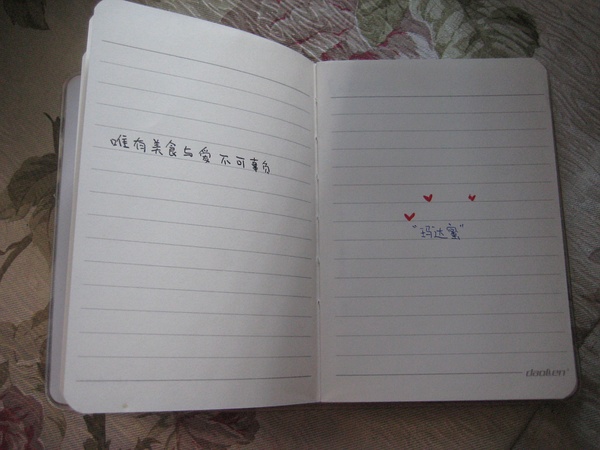 唯有美食与爱不可辜负
"玛达蜜"